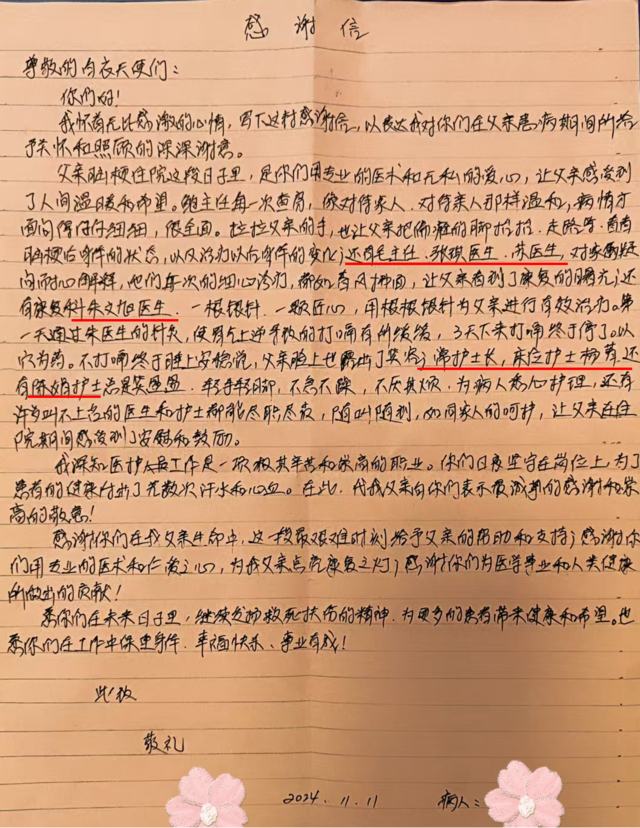 感谢信
尊敬的白衣天使们：
你们好！
我怀着无比感激的心情，写下这封感谢信，以表达我对你们在父亲患病期间所给
予关怀和照顾的深深谢意。
父亲脑梗住院这段日子里，是你们用专业的医术和无私的爱心，让父亲感受到
了人间温暖和希望。主任每一次查房，像对待家人、对待亲人那样温和，病情方
面问得仔仔细细，很全面。拉拉父亲的手，也让父亲把偏瘫的脚抬抬、走路等，看看
脑梗后肢体的状态，以及治疗以后肢体的变化；还有毛主任、张琪医生、苏医生，对家属疑
问耐心解释，他们每次的细心治疗，都如春风拂面，让父亲看到了康复的曙光；还
有康复科朱文旭医生，一根银针、一颗匠心，用根根银针为父亲进行有效治疗。第
一天通过朱医生的针灸，使胃气上逆导致的打嗝有所缓缓，3天下来打嗝终于停了。以
穴为药。不打嗝终于睡上安稳觉，父亲脸上也露出了笑容；护士长，床位护士杨莉，还
有陈娟护士总是笑盈盈、轻手轻脚，不急不躁，不厌其烦，为病人悉心护理，还有
许多叫不上名的医生和护士都能尽职尽责，随叫随到，如同家人的呵护，让父亲在住
院期间感受到了安慰和鼓励。
我深知医护人员工作是一项极其辛苦和崇高的职业。你们日夜坚守在岗位上，为了
患者的健康付出了无数次汗水和心血。在此，代我父亲向你们表示最诚挚的感谢和崇
高的敬意！
感谢你们在我父亲生命中，这一段最艰难时刻给予父亲的帮助和支持；感谢你
们用专业的医术和仁爱之心，为我父亲点亮康复之灯；感谢你们为医学事业和人类健康
所做出的贡献！
愿你们在未来日子里，继续发扬救死扶伤的精神，为更多的患者带来健康和希望。也
愿你们在工作中保重身体、幸福快乐、事业有成！
此致
敬礼
2024.11.11 病人：